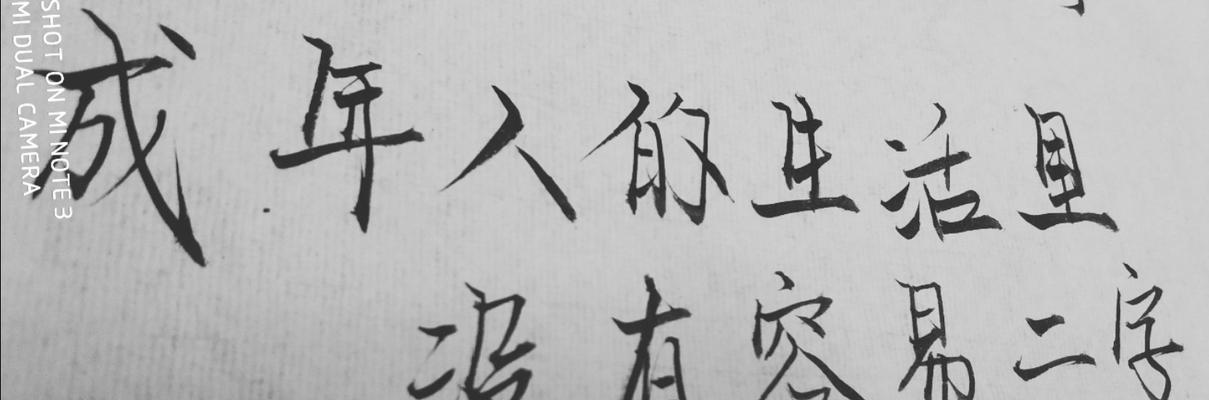 成年人的生活里
没有容易二字
SHOT ON MI NOTE 3
MI DUAL CAMERA